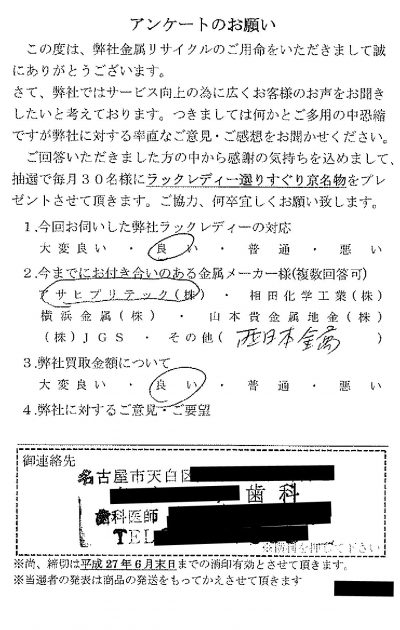 アンケートのお願い
この度は、弊社金属リサイクルのご用命をいただきまして誠
にありがとうございます。
さて、弊社ではサービス向上の為に広くお客様のお声をお聞き
したいと考えております。つきましては何かとご多用の中恐縮
ですが弊社に対する率直なご意見・ご感想をお聞かせください。
ご回答いただきました方の中から感謝の気持ちを込めまして、
抽選で毎月30名様にラックレディー選りすぐり京名物をプレ
ゼントさせて頂きます。ご協力、何卒宜しくお願い致します。
1.今回お伺いした弊社ラックレディーの対応
大変良い ・ 良い ・ 普通 ・ 悪い
2.今までにお付き合いのある金属メーカー様(複数回答可)
アサヒプリテック(株) ・ 相田化学工業(株)
横浜金属(株) ・ 山本貴金属地金(株)
(株)JGS ・ その他( 西日本金属 )
3.弊社買取金額について
大変良い ・ 良い ・ 普通 ・ 悪い
4.弊社に対するご意見・ご要望
御連絡先
名古屋市天白区
歯科
歯科医師
TEL
※尚、締切は平成27年6月末日までの消印有効とさせて頂きます。
※当選者の発表は商品の発送をもってかえさせて頂きます